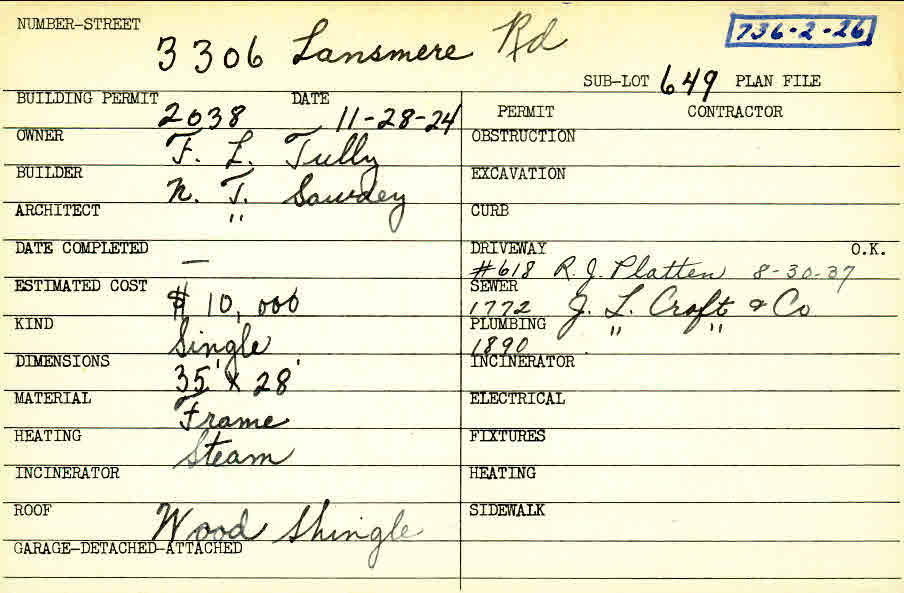 NUMBER-STREET
3306 Lansmere Rd
736-2-26
SUB-LOT 649 PLAN FILE
BUILDING PERMIT 2038 DATE 11-28-24
OWNER F. L. Tully
BUILDER N. T. Sawdey
ARCHITECT "
DATE COMPLETED —
ESTIMATED COST $10,000
KIND Single
DIMENSIONS 35' x 28'
MATERIAL Frame
HEATING Steam
INCINERATOR
ROOF Wood Shingle
GARAGE-DETACHED-ATTACHED
PERMIT CONTRACTOR
OBSTRUCTION
EXCAVATION
CURB
DRIVEWAY O.K.
#618 R. J. Platten 8-30-37
SEWER
1772 J. L. Croft & Co
PLUMBING " "
1890
INCINERATOR
ELECTRICAL
FIXTURES
HEATING
SIDEWALK